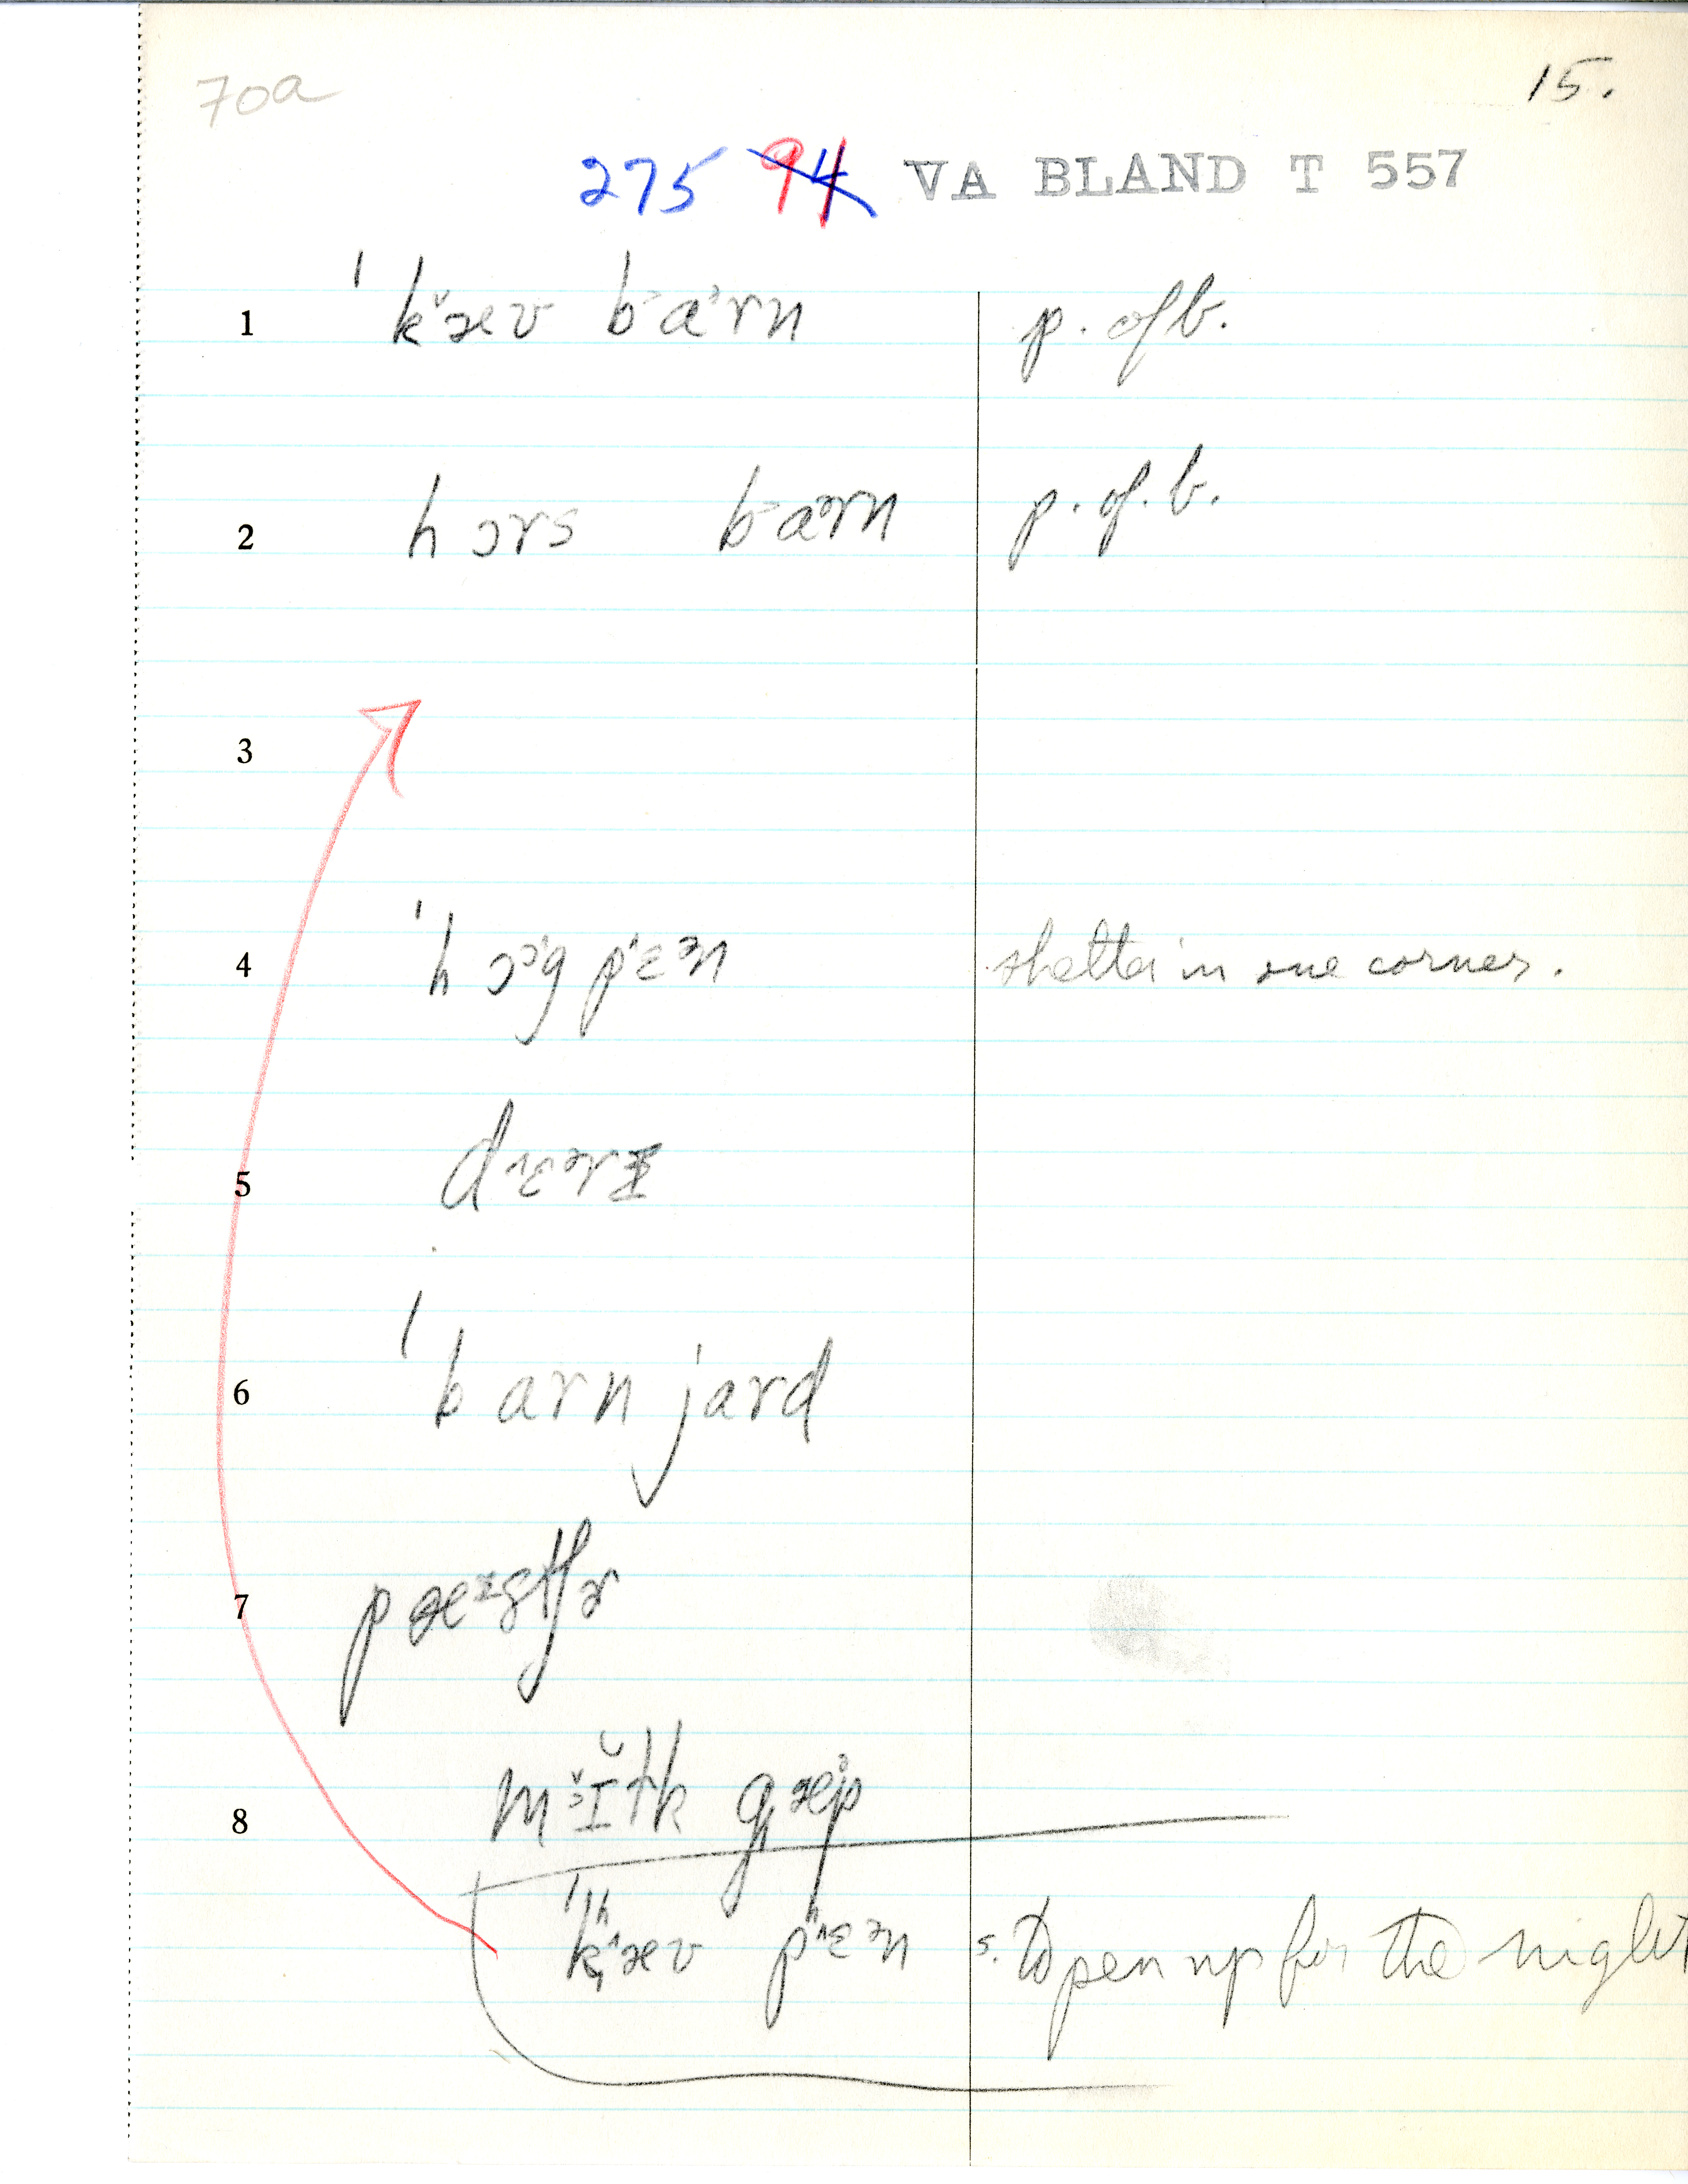 70a
15.
275 94 VA BLAND T 557
1 ˈkæv barn p. of b.
2 hɔrs barn p. of. b.
3
4 ˈhɔg pɛən shelter in one corner.
5 dɛərɪ
6 ˈbarn jard
7 pæᶦstʃɚ
8 mɪᵊlk gæp
ˈkʰæv pʰɛən s. to pen up for the night